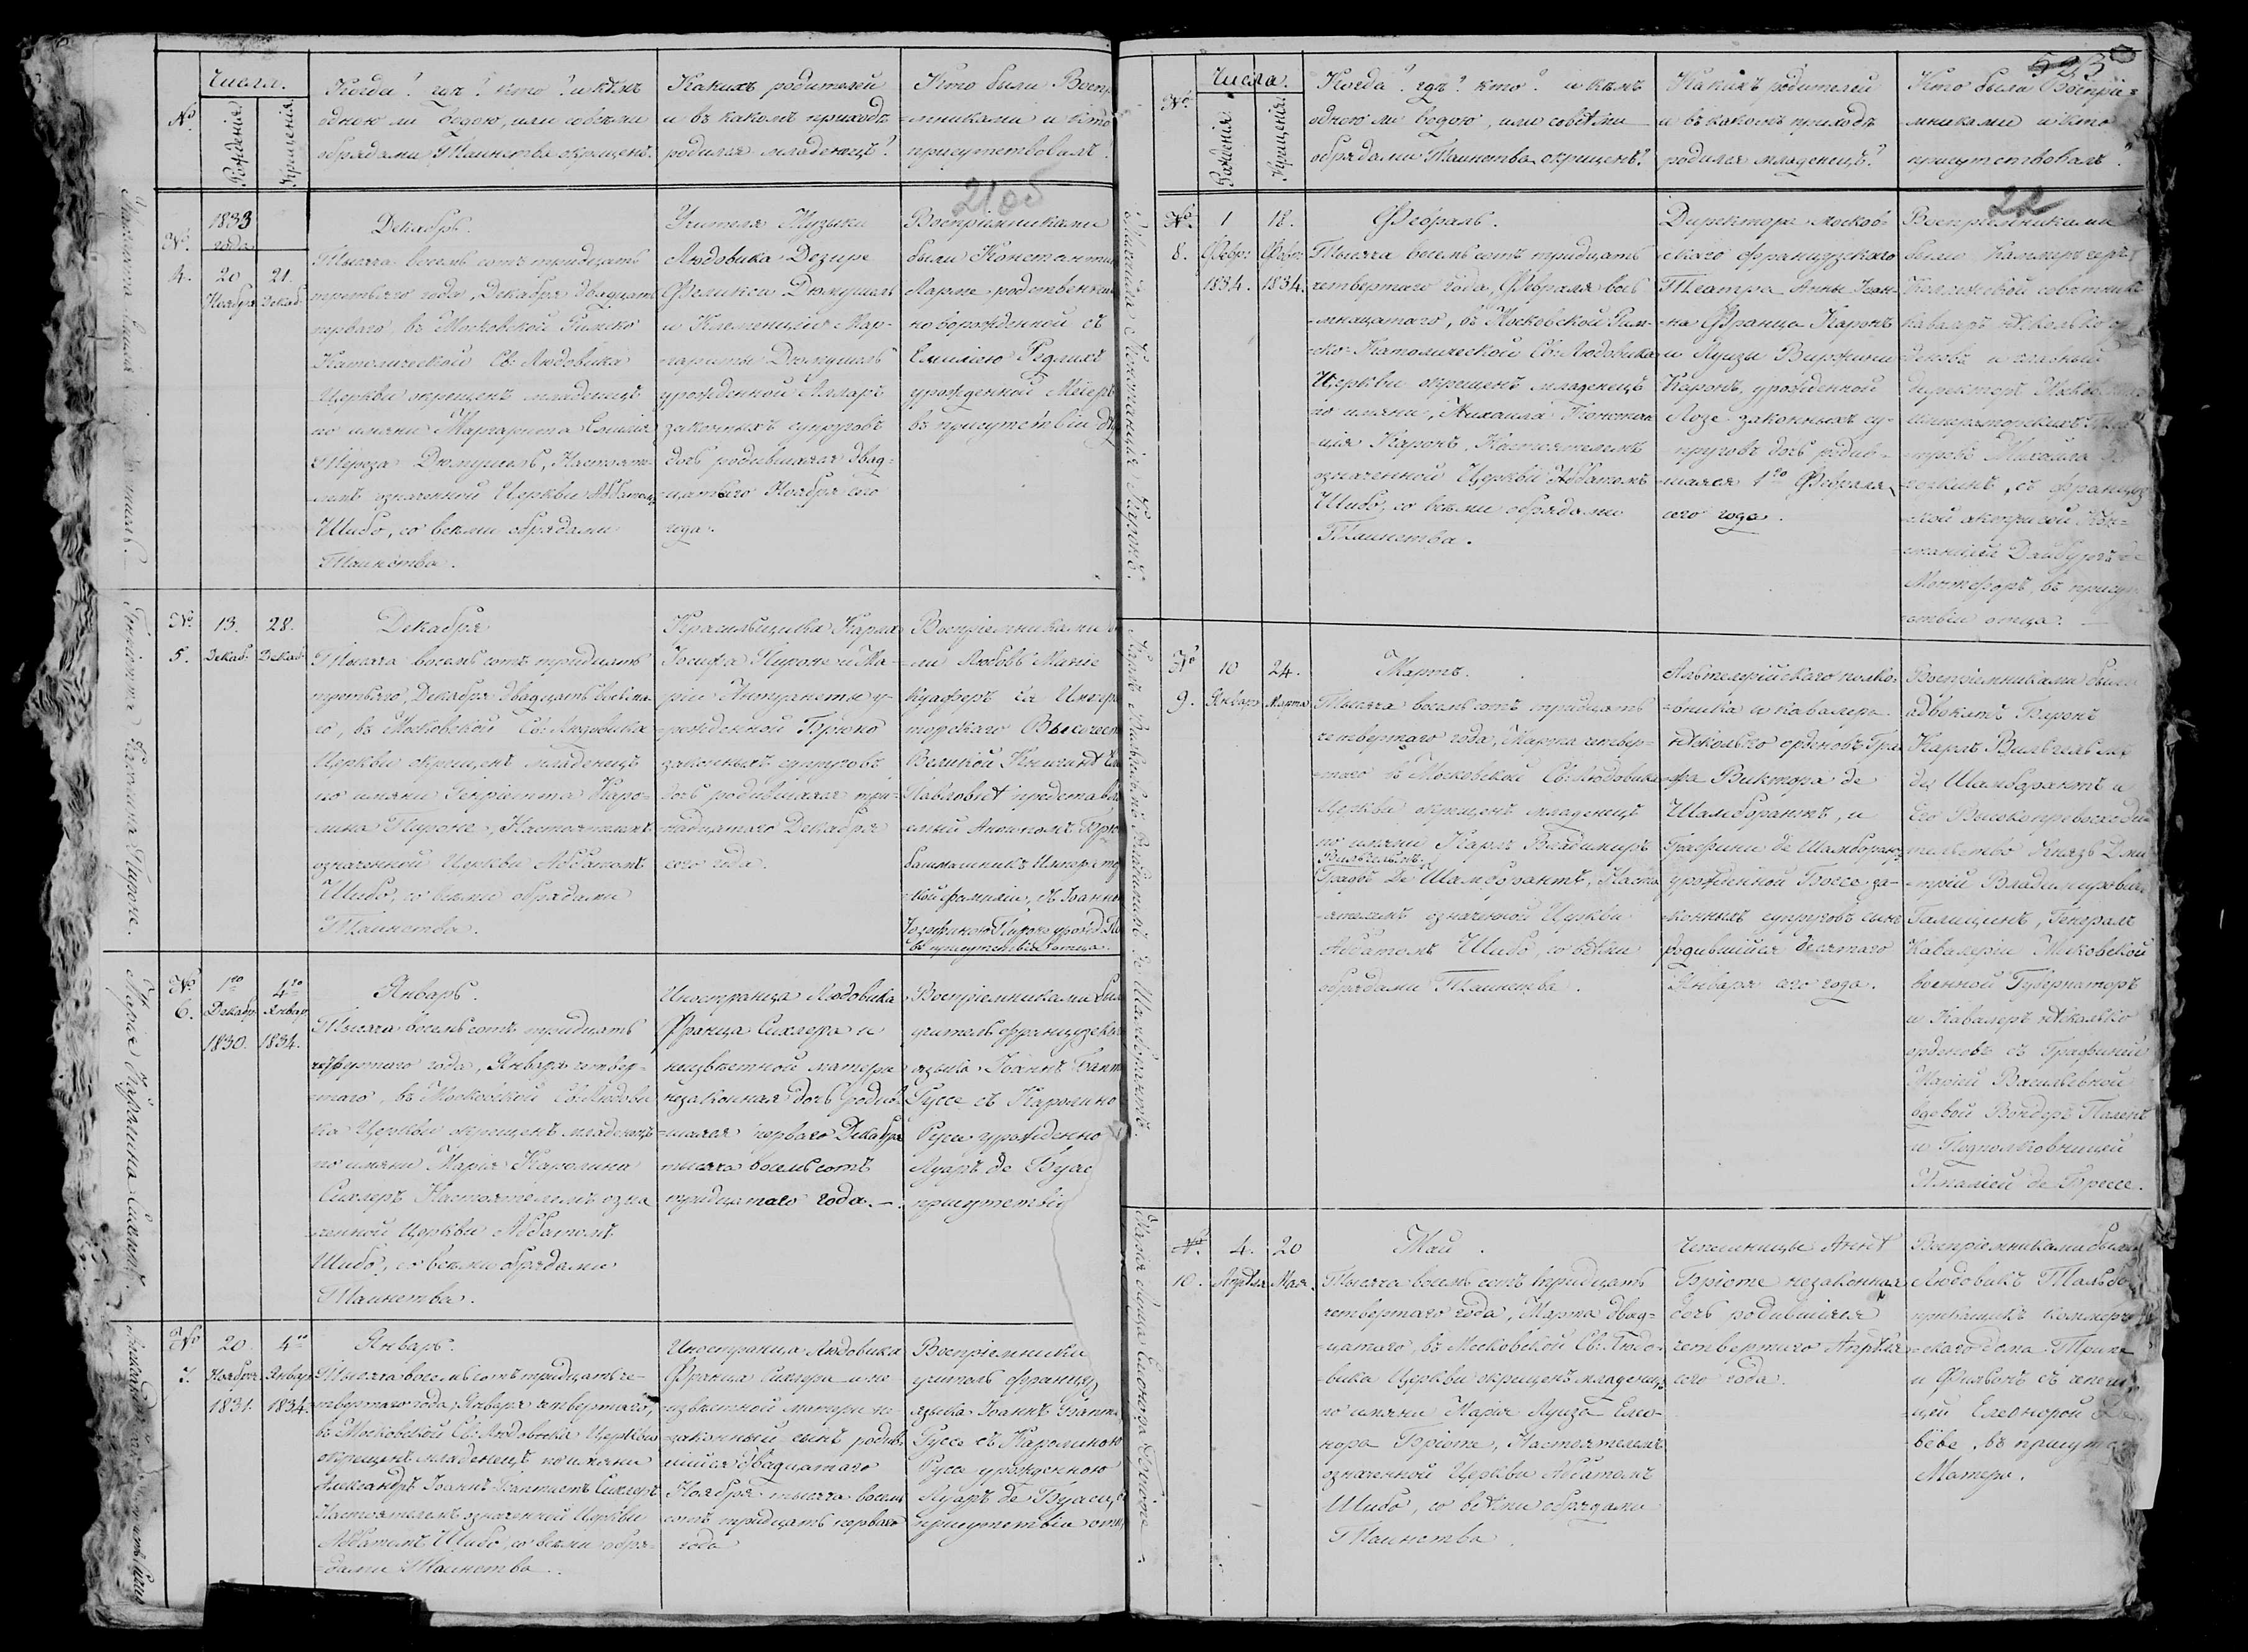 Числа.
№
Рожденія.
Крещенія.
Когда? гдѣ? кто? и кѣмъ
одною ли водою, или совсѣми
обрядами Таинства окрещенъ.
Какихъ родителей
и въ какомъ приходѣ
родился младенецъ?
Кто были Воспрі
=мниками и кто
присутствовалъ?
21об
№
4.
1833
года
20
Ноября
21.
Декаб.
Декабрь.
Тысяча восемь сотъ тридцать
третьяго года, Декабря двадцать
перваго, въ Московской Римско
Католической Св: Людовика
Церкви окрещенъ младенецъ
по имяни Маргарита Емилія
Тереза Дюмушель, Настояте-
лемъ означенной Церкви Аббатомъ
Шибо, со всѣми обрядами
Таинства.
Учителя Музыки
Людовика Дезире
Феликса Дюмушель
и Клеменціи Мар-
гариты Дюмушель
урожденной Алларъ
законныхъ супруговъ
дочь родившаяся двад-
цатаго Ноября сего
года.
Воспріемниками
были Константинъ
Ларме родственникъ
новорожденной съ
Емиліею Редлихъ
урожденной Мейеръ
въ присутствіи
№
5.
13.
Декаб.
28.
Декаб.
Декабря
Тысяча восемь сотъ тридцать
третьяго, Декабря двадцать восьма-
го, въ Московской Св: Людовика
Церкви окрещенъ младенецъ
по имяни Генріетта Каро-
лина Пироне, Настоятелемъ
означенной Церкви Аббатомъ
Шибо, со всѣми обрядами
Таинства.
Красильщика Карла
Іосифа Пироне и Ма-
ріи Антуанеты у-
рожденной Брюно
законныхъ супруговъ
дочь родившаяся три-
надцатаго Декабря
сего года.
Воспріемниками бы
ли Любовь Маніе
куаферъ Ея Импера
торскаго Высочест
Великой Княгинѣ Ел
Павловнѣ представл
башмашникъ Импера то
кой фамиліи, съ Іоанно
въ присутствіи отца.
№
6.
1го
Декабр
1830.
4го
Январ
1834.
Январь.
Тысяча восемь сотъ тридцать
четвертаго года, Января четвер-
таго, въ Московской Св: Людови
ка Церкви окрещенъ младенецъ
по имяни Марія Каролина
Сихлеръ Настоятелемъ озна
ченной Церкви Аббатомъ
Шибо, со всѣми обрядами
Таинства.
Иностранца Людовика
Франца Сихлера и
неизвѣстной матери
незаконная дочь родив-
шаяся перваго Декабря
тысяча восемь сотъ
тридцатаго года. —
Воспріемниками бы
учитель французска
языка Іоаннъ Бапт
Руссе съ Каролино
Руссе урожденно
Луаръ де Буас
присутствіи
№
7.
20
Ноября
1831.
4го
Январ
1834.
Январь.
Тысяча восемь сотъ тридцать че-
твертаго года, Января четвертаго,
въ Московской Св: Людовика Церкви
окрещенъ младенецъ по имяни
Александръ Іоаннъ Баптистъ Сихлеръ
Настоятелемъ означенной Церкви
Аббатомъ Шибо, со всѣми обря-
дами Таинства.
Иностранца Людовика
Франца Сихлера и не
извѣстной матери не-
законный сынъ родив-
шійся двадцатаго
Ноября тысяча восемь
сотъ тридцать перваго
года
Воспріемники
учитель француз
языка Іоаннъ Бапти
Руссе съ Каролиною
Руссе урожденною
Луаръ де Буасц
присутствіи отц
Генріетта Каролина Пироне.
Марія Каролина Сихлеръ.
Числа.
№
Рожденія.
Крещенія.
Когда? гдѣ? кто? и кѣмъ
одною ли водою, или совсѣми
обрядами Таинства окрещенъ?
Какихъ родителей
и въ какомъ приходѣ
родился младенецъ?
Кто были Воспріе=
мниками и кто
присутствовалъ?
22
№
8.
1
Февр:
1834.
18.
Февр:
1834.
Февраль.
Тысяча восемь сотъ тридцать
четвертаго года, Февраля вось
мнадцатаго, въ Московской Рим-
ско-Католической Св: Людовика
Церкви окрещенъ младенецъ
по имяни, Михаила Констан
ція Каронъ, Настоятелемъ
означенной Церкви Аббатомъ
Шибо, со всѣми обрядами
Таинства.
Директора Москов-
скаго французскаго
Театра Анны Іоан-
на Франца Каронъ
и Луизы Виржини
Каронъ, урожденной
Лозе законныхъ су-
пруговъ дочь родив-
шаяся 1го Февраля
сего года.
Воспріемниками
были Каммергеръ
Коллежской совѣтникъ
кавалеръ нѣсколько ор
деновъ и главный
директоръ Московскихъ
Императорскихъ Теа
тровъ Михаилъ
съ француз
ской актрисой Кон-
станціей Дамбуръ де
Монтефоръ, въ присут
ствіи отца.
№
9.
10
Январ
24.
Марта
Мартъ.
Тысяча восемь сотъ тридцать
четвертаго года, Марта четвер-
таго въ Московской Св: Людовика
Церкви окрещенъ младенецъ
по имяни Карлъ Владимиръ
Вильгельмъ
Графъ Де Шамборантъ, Насто
ятелемъ означенной Церкви
Аббатомъ Шибо, со всѣми
обрядами Таинства.
полко-
вника и кавалера
нѣсколько орденовъ Гра-
фа Виктора де
Шамборантъ, и
Графини де Шамборантъ
урожденной Боссе за-
конныхъ супруговъ сынъ
родившійся десятаго
Января сего года.
Воспріемниками были
адвокатъ Баронъ
Карлъ Вильгельмъ
де Шамборантъ и
Его Высокопревосходи
тельство Князь Дми
трій Владимировичъ
Галицинъ, Генералъ
Кавалеріи Московской
военной Губернаторъ
и Кавалеръ нѣсколько
орденовъ съ Графиней
Маріей Васильевной
вдовой Вондеръ Паленъ
и Подполковницей
Амаліей де Брессе.
№
10.
4.
Апрѣля
20
Мая.
Май.
Тысяча восемь сотъ тридцать
четвертаго года, Марта двад-
цатаго, въ Московской Св: Людо-
вика Церкви окрещенъ младенецъ
по имяни Марія Луиза Елео-
нора Бріоте, Настоятелемъ
означенной Церкви Аббатомъ
Шибо, со всѣми обрядами
Таинства.
Чепешницы Аннѣ
Бріоте незаконная
дочь родившаяся
четвертаго Апрѣля
сего года.
Воспріемниками были
Людовикъ Тальбо
прикащикъ коммерч
скаго дома
и съ чепеш
цей Елеонорой
въ присутст
Матери.
Михаила Констанція Каронъ.
Карлъ Вильгельмъ Владимиръ де Шамборантъ.
Марія Луиза Елеонора Бріоте